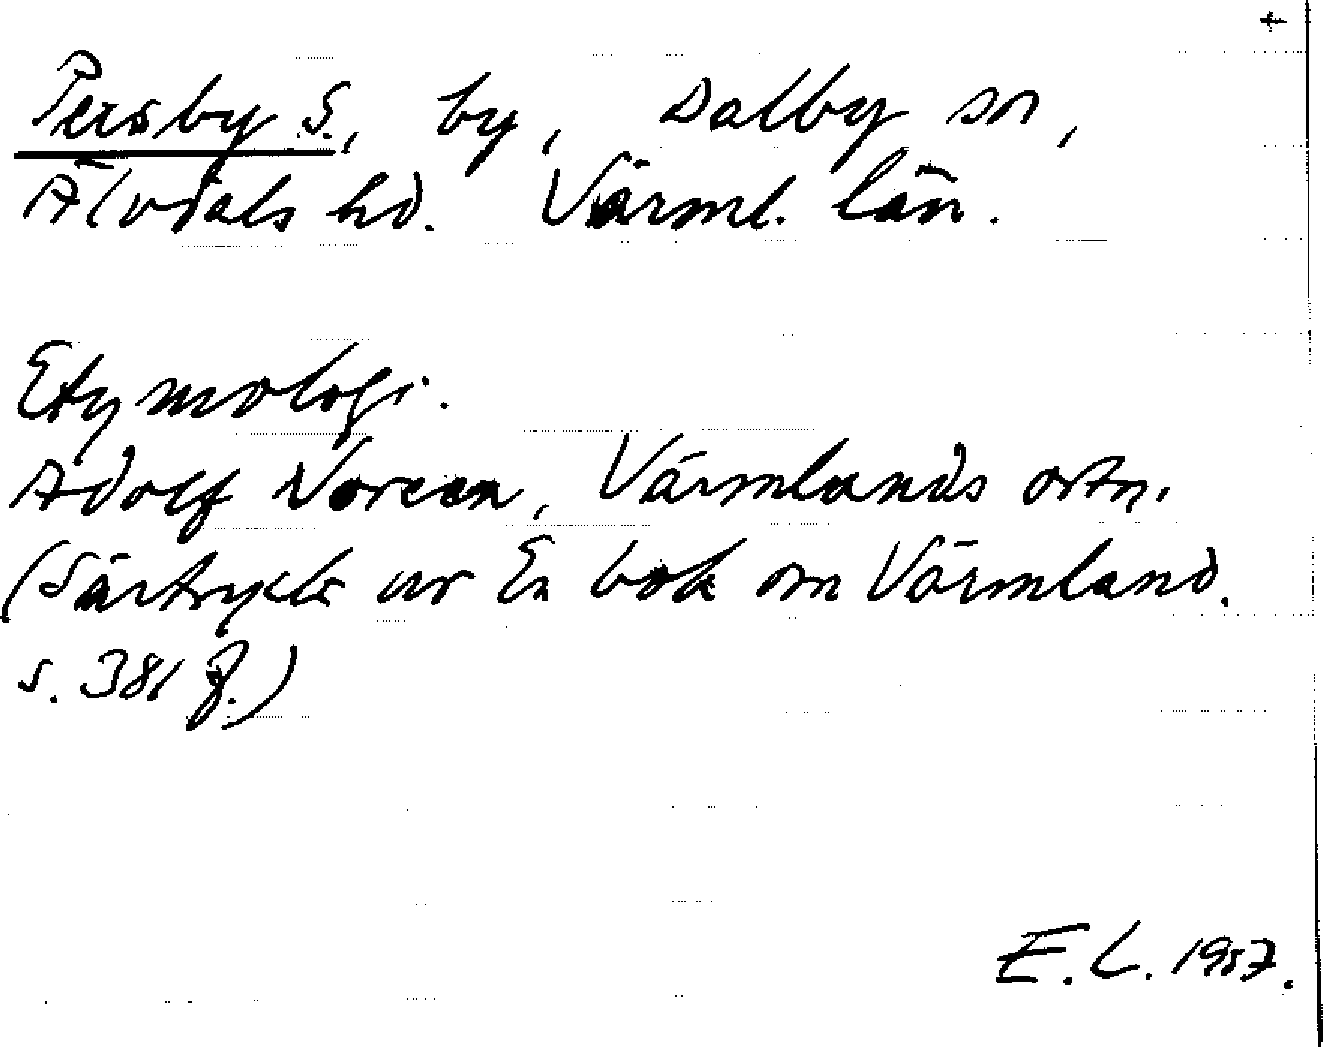 +
Persby S., by, Dalby sn,
Älvdals hd. Värml. län.
Etymologi.
Adolf Noreen, Värmlands ortn.
(Särtryck ur En bok om Värmland.
s. 381 f.)
E. L. 1957.